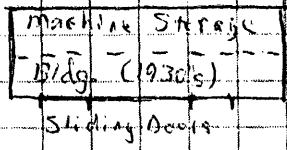 Machine Storage
Bldg. (1930's)
Sliding Doors